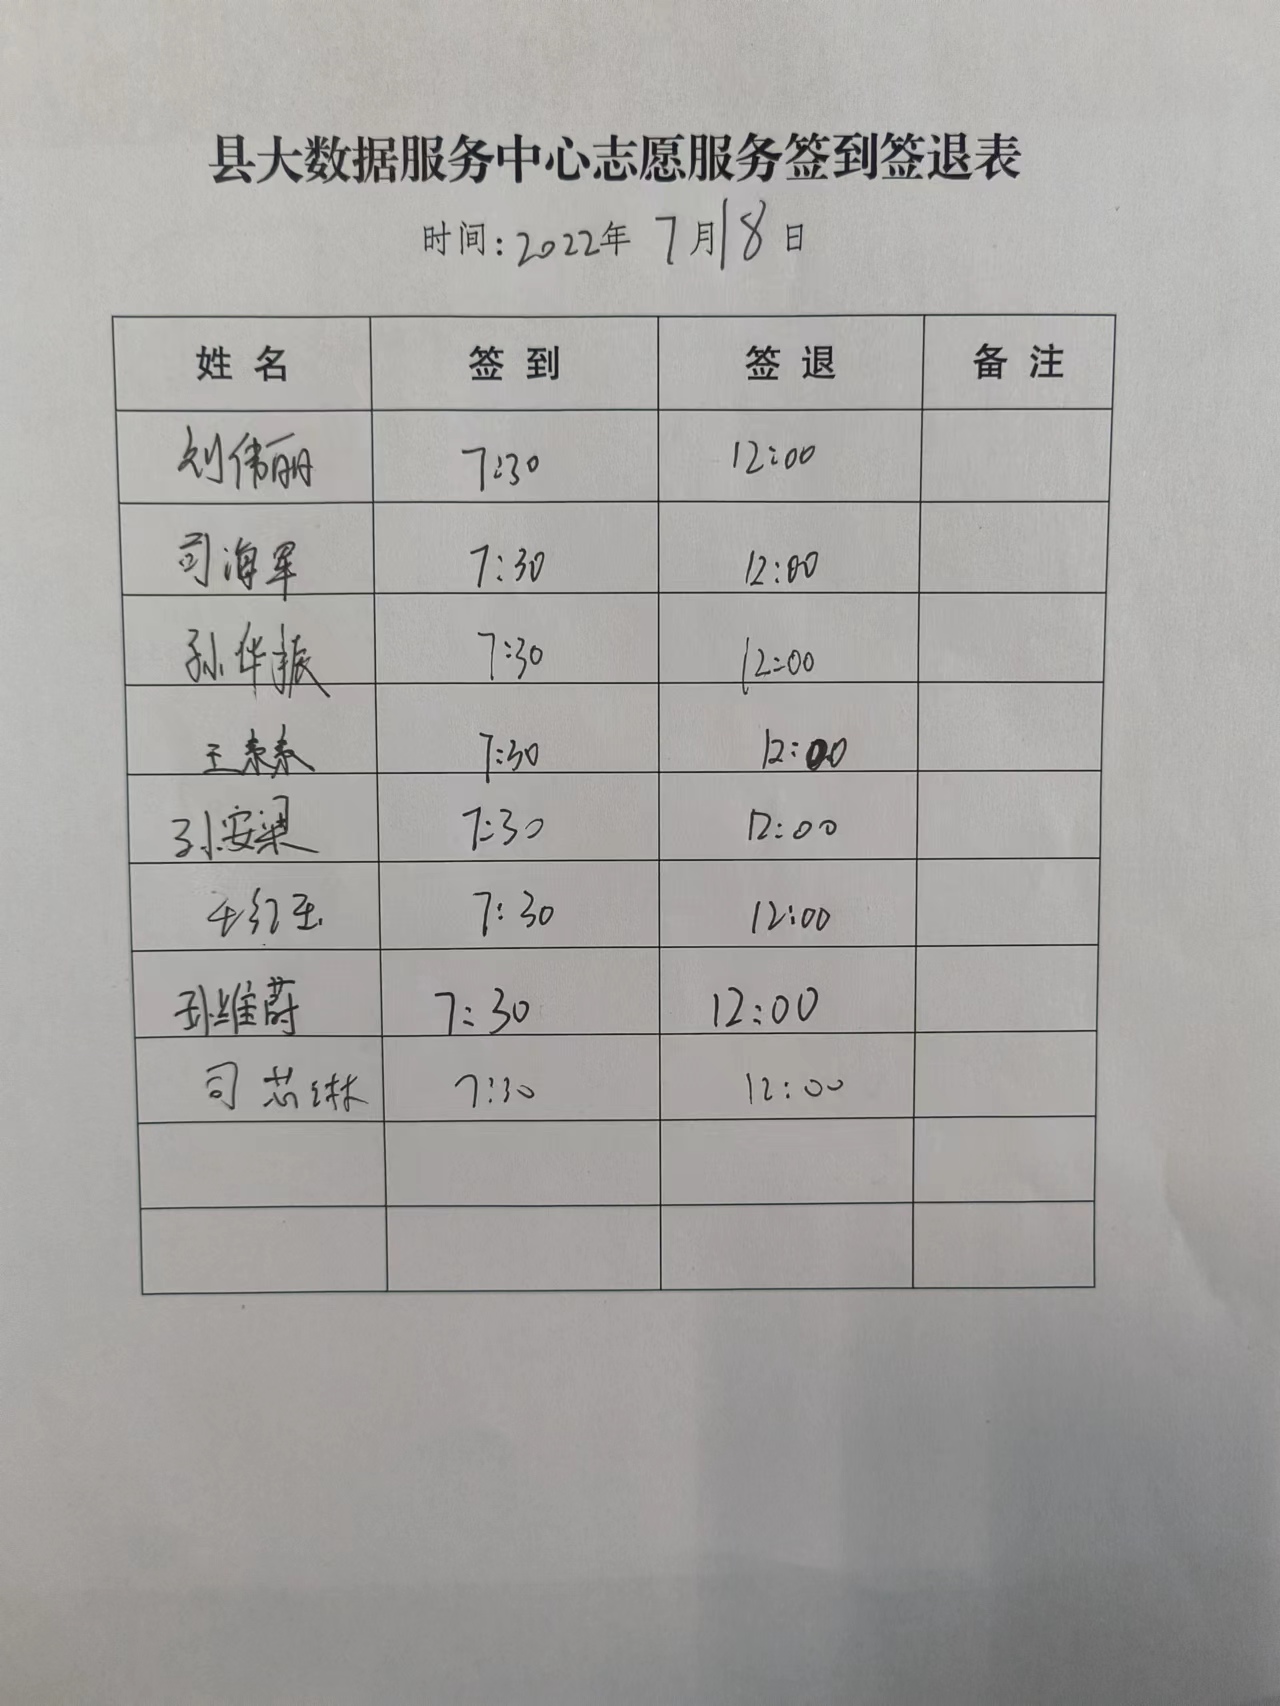 县大数据服务中心志愿服务签到签退表
时间:2022年 7月18日
姓名 签到 签退 备注
刘伟丽 7:30 12:00
司海军 7:30 12:00
孙华振 7:30 12:00
王泰泰 7:30 12:00
孙安梁 7:30 12:00
7:30 12:00
孙维蔚 7:30 12:00
司芯琳 7:30 12:00